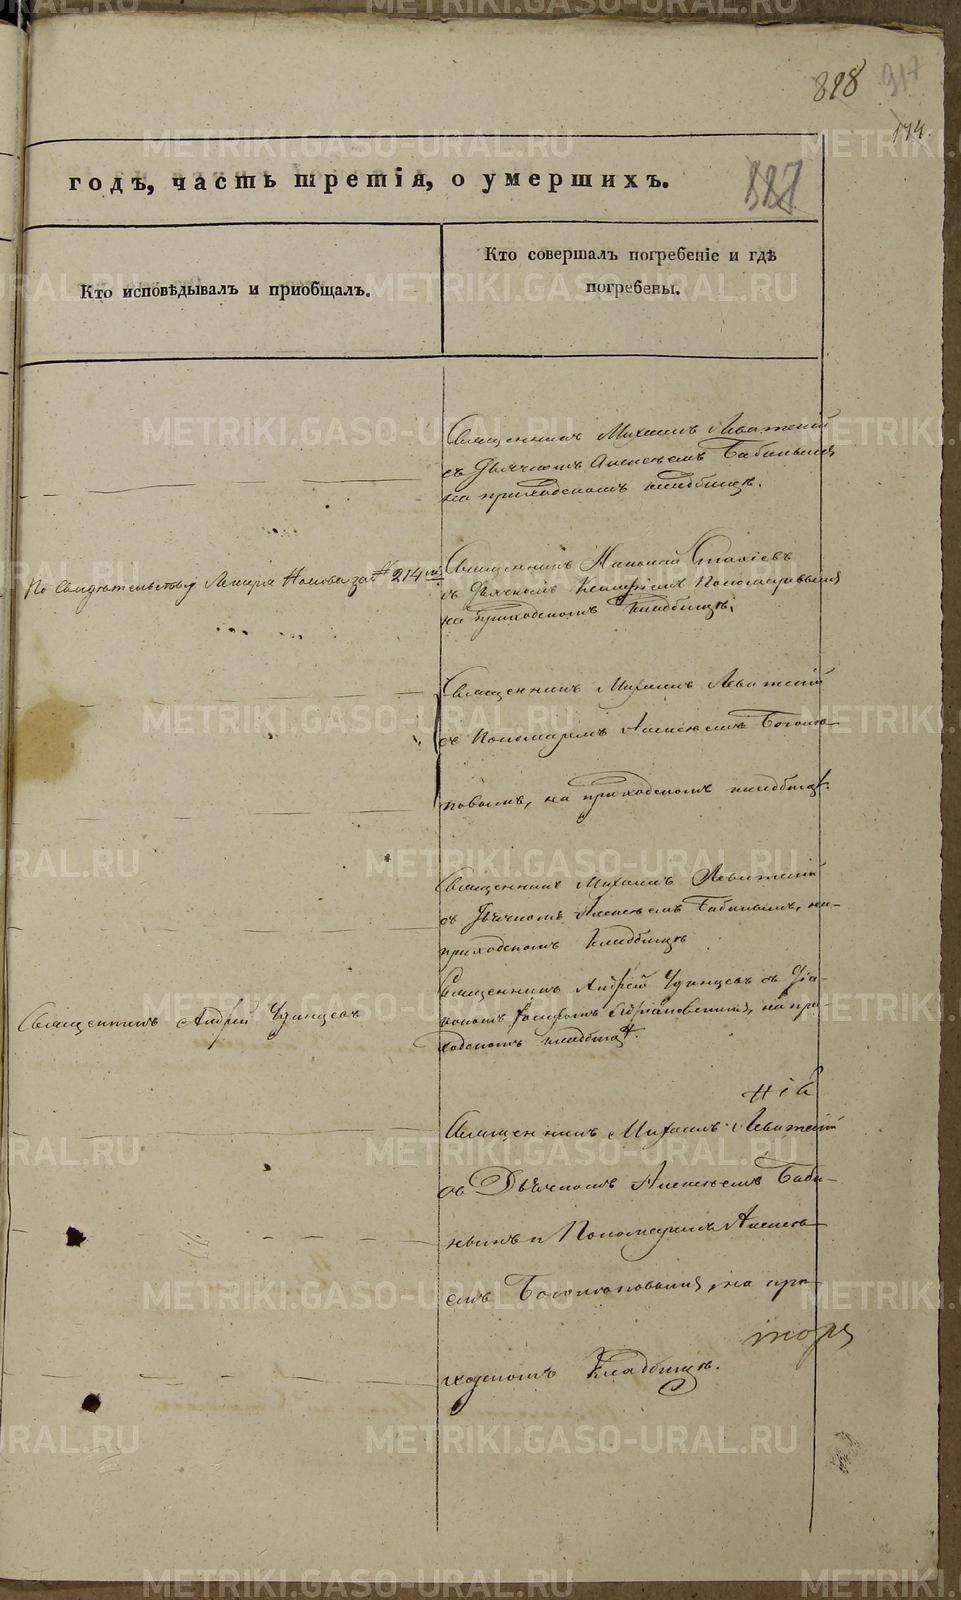 828 317
174.
годъ, часть третія, о умершихъ.
827
Кто исповѣдывалъ и приобщалъ.
Кто совершалъ погребеніе и гдѣ
погребены.
Священникъ Михаилъ Левитскій
съ Дьячкомъ Алексѣемъ Бабинымъ
на приходскомъ кладбищѣ.
По Свидѣтельству Лекаря за № 214
Священникъ
съ Дьячкомъ
на приходскомъ кладбищѣ.
Священникъ Михаилъ Левитскій
съ Пономаремъ Алексѣемъ Боголѣ-
повымъ, на приходскомъ кладбищѣ.
Священникъ Михаилъ Левитскій
съ Дьячкомъ Алексѣемъ Бабинымъ, на
приходскомъ кладбищѣ
Священникъ Андрей Удинцевъ
Священникъ Андрей Удинцевъ съ Діа-
кономъ на при-
ходскомъ кладбищѣ.
Священникъ Михаилъ Левитскій
съ Дьячкомъ Алексѣемъ Баби-
нымъ и Пономаремъ Алексѣ-
емъ Боголѣповымъ, на при-
ходскомъ Кладбищѣ.
METRIKI.GASO-URAL.RU